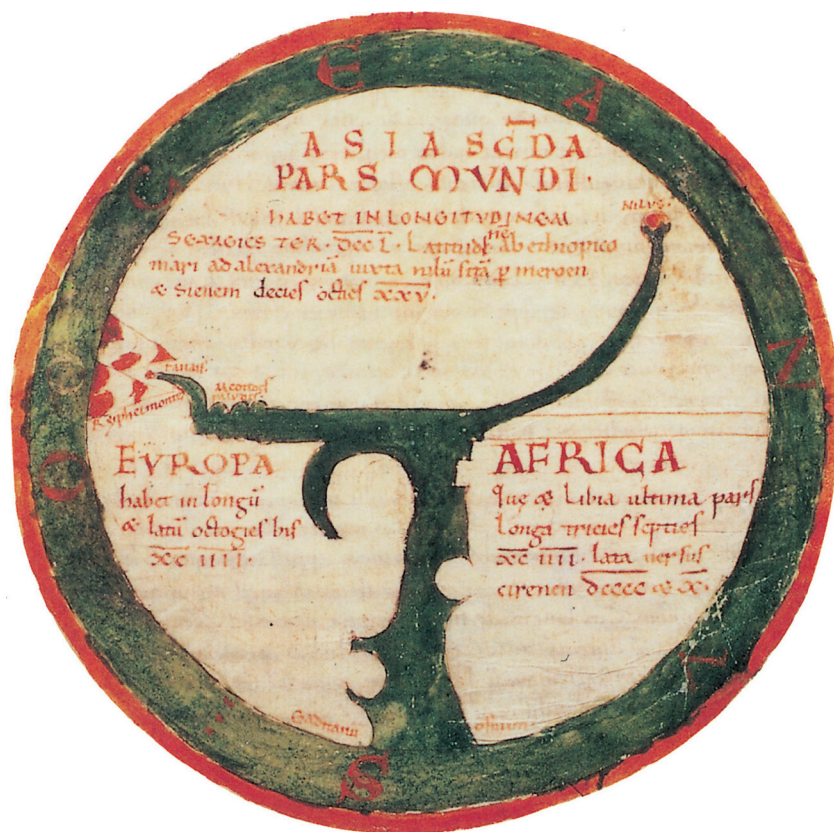 E A
G Z
O
C
S
ASIA SC̄DA
PARS MUNDI.
NILUS.
HABET IN LONGITUDINEM
SEXAGIES TER. D̅C̅C̅ L̅. Latitudine Ab ethiopico
mari ad alexandriā iuxta nilū sitā ꝑ meroen
& Sienem decies octies X̅X̅V̅.
tanais.
Meotides
paludes
Rypheimontes
EVROPA
habet in longū
& latū octogies bis
X̅C̅ IIII.
AFRICA
Que & Libia ultima pars
Longa tricies septies
X̅C̅ IIII. lata versus
cirenen D̅C̅C̅C̅C̅ & X̅.